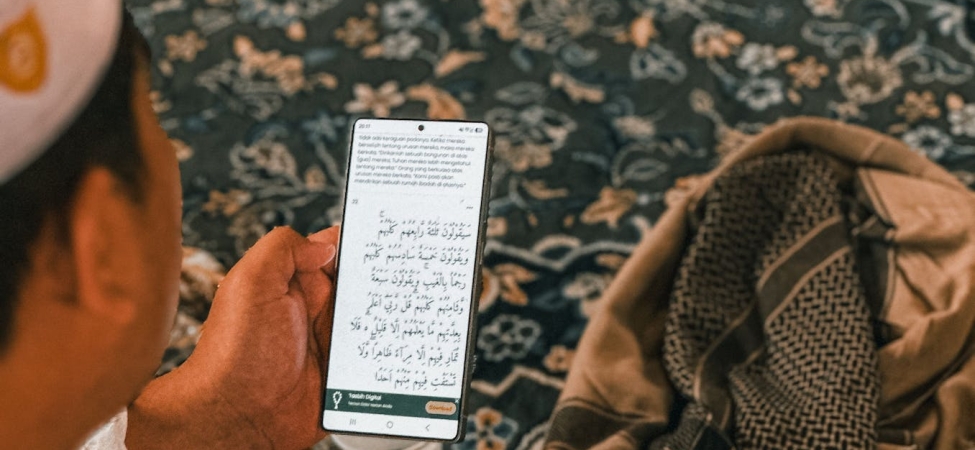 tidak ada keraguan padanya. Ketika mereka
berselisih tentang urusan mereka, maka mereka
berkata, "Dirikanlah sebuah bangunan di atas
(gua) mereka; Tuhan mereka lebih mengetahui
tentang mereka." Orang yang berkuasa atas
urusan mereka berkata, "Kami pasti akan
mendirikan sebuah rumah ibadah di atasnya."
سَيَقُوْلُوْنَ ثَلٰثَةٌ رَّابِعُهُمْ كَلْبُهُمْۚ
وَيَقُوْلُوْنَ خَمْسَةٌ سَادِسُهُمْ كَلْبُهُمْ
رَجْمًاۢ بِالْغَيْبِۚ وَيَقُوْلُوْنَ سَبْعَةٌ
وَّثَامِنُهُمْ كَلْبُهُمْۗ قُلْ رَّبِّيْٓ اَعْلَمُ
بِعِدَّتِهِمْ مَّا يَعْلَمُهُمْ اِلَّا قَلِيْلٌ ەۗ فَلَا
تُمَارِ فِيْهِمْ اِلَّا مِرَاۤءً ظَاهِرًاۖ وَّلَا
تَسْتَفْتِ فِيْهِمْ مِّنْهُمْ اَحَدًا
Tasbih Digital
Download